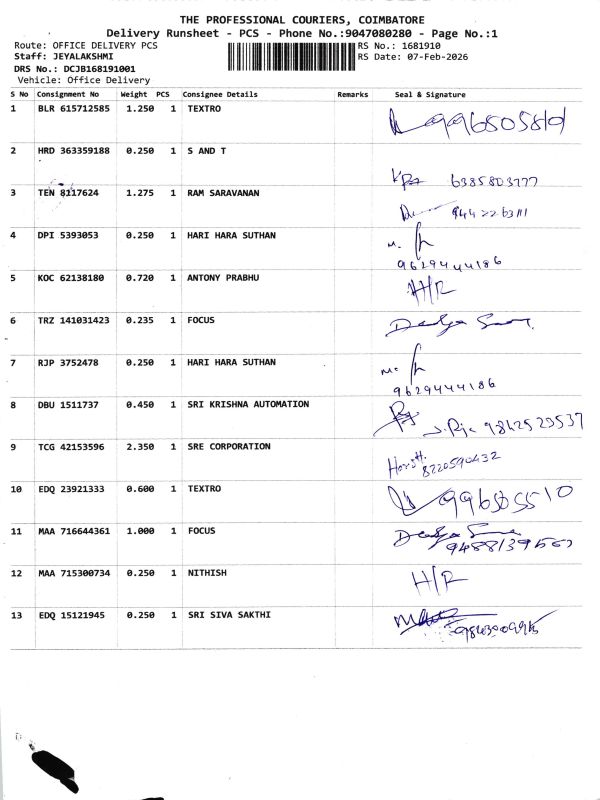 THE PROFESSIONAL COURIERS, COIMBATORE
Delivery Runsheet - PCS - Phone No.:9047080280 - Page No.:1
Route: OFFICE DELIVERY PCS
Staff: JEYALAKSHMI
DRS No.: DCJB168191001
Vehicle: Office Delivery
RS No.: 1681910
RS Date: 07-Feb-2026
S No Consignment No Weight PCS Consignee Details Remarks Seal & Signature
1 BLR 615712585 1.250 1 TEXTRO
2 HRD 363359188 0.250 1 S AND T 6385803777
3 TEN 8117624 1.275 1 RAM SARAVANAN
4 DPI 5393053 0.250 1 HARI HARA SUTHAN 9629444186
5 KOC 62138180 0.720 1 ANTONY PRABHU H/R
6 TRZ 141031423 0.235 1 FOCUS
7 RJP 3752478 0.250 1 HARI HARA SUTHAN 9629444186
8 DBU 1511737 0.450 1 SRI KRISHNA AUTOMATION 9842529537
9 TCG 42153596 2.350 1 SRE CORPORATION 8220590432
10 EDQ 23921333 0.600 1 TEXTRO
11 MAA 716644361 1.000 1 FOCUS
12 MAA 715300734 0.250 1 NITHISH H/R
13 EDQ 15121945 0.250 1 SRI SIVA SAKTHI